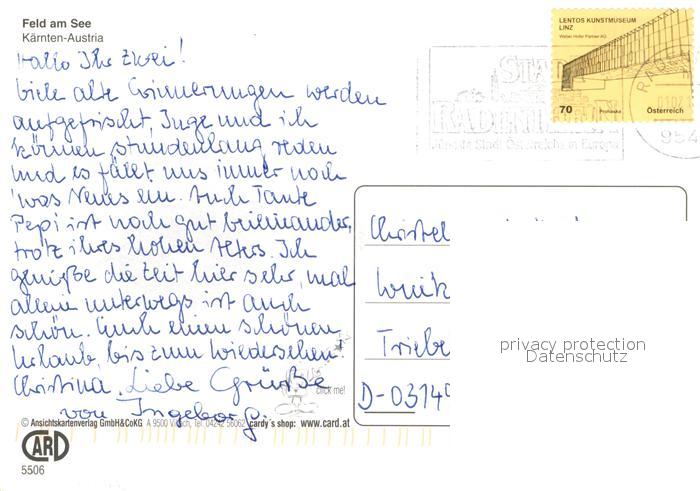 Feld am See
Kärnten-Austria
Hallo Ihr zwei!
viele alte Erinnerungen werden
aufgefrischt, Inge und ich
können stundenlang reden
und es fällt uns immer noch
was Neues ein. Auch Tante
Pepi ist noch gut beieinander,
trotz ihres hohen Alters. Ich
genieße die Zeit hier sehr, mal
alleine unterwegs ist auch
schön. Euch einen schönen
Urlaub, bis zum Wiedersehen!
Christina. Liebe Grüße
von Ingeborg.
click me!
© Ansichtskartenverlag GmbH&CoKG A 9500 Villach, Tel. 04242 56062 cardy´s shop: www.card.at
CARD
5506
LENTOS KUNSTMUSEUM
LINZ
Weber Hofer Partner AG
70 Prohaska Österreich
STADT
RADENTHEIN
Jüngste Stadt Österreichs in Europa
954
Christel
Triebe
D-03149
privacy protection
Datenschutz